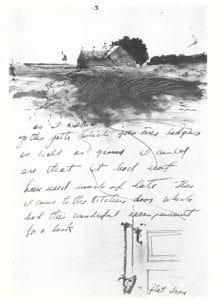 3
as I walked
up the path which goes over ledges
as well as ground I could
see that it had not
been used much of late. Then
I came to the kitchen door which
had this wonderful arrangement
for a lock
flat iron